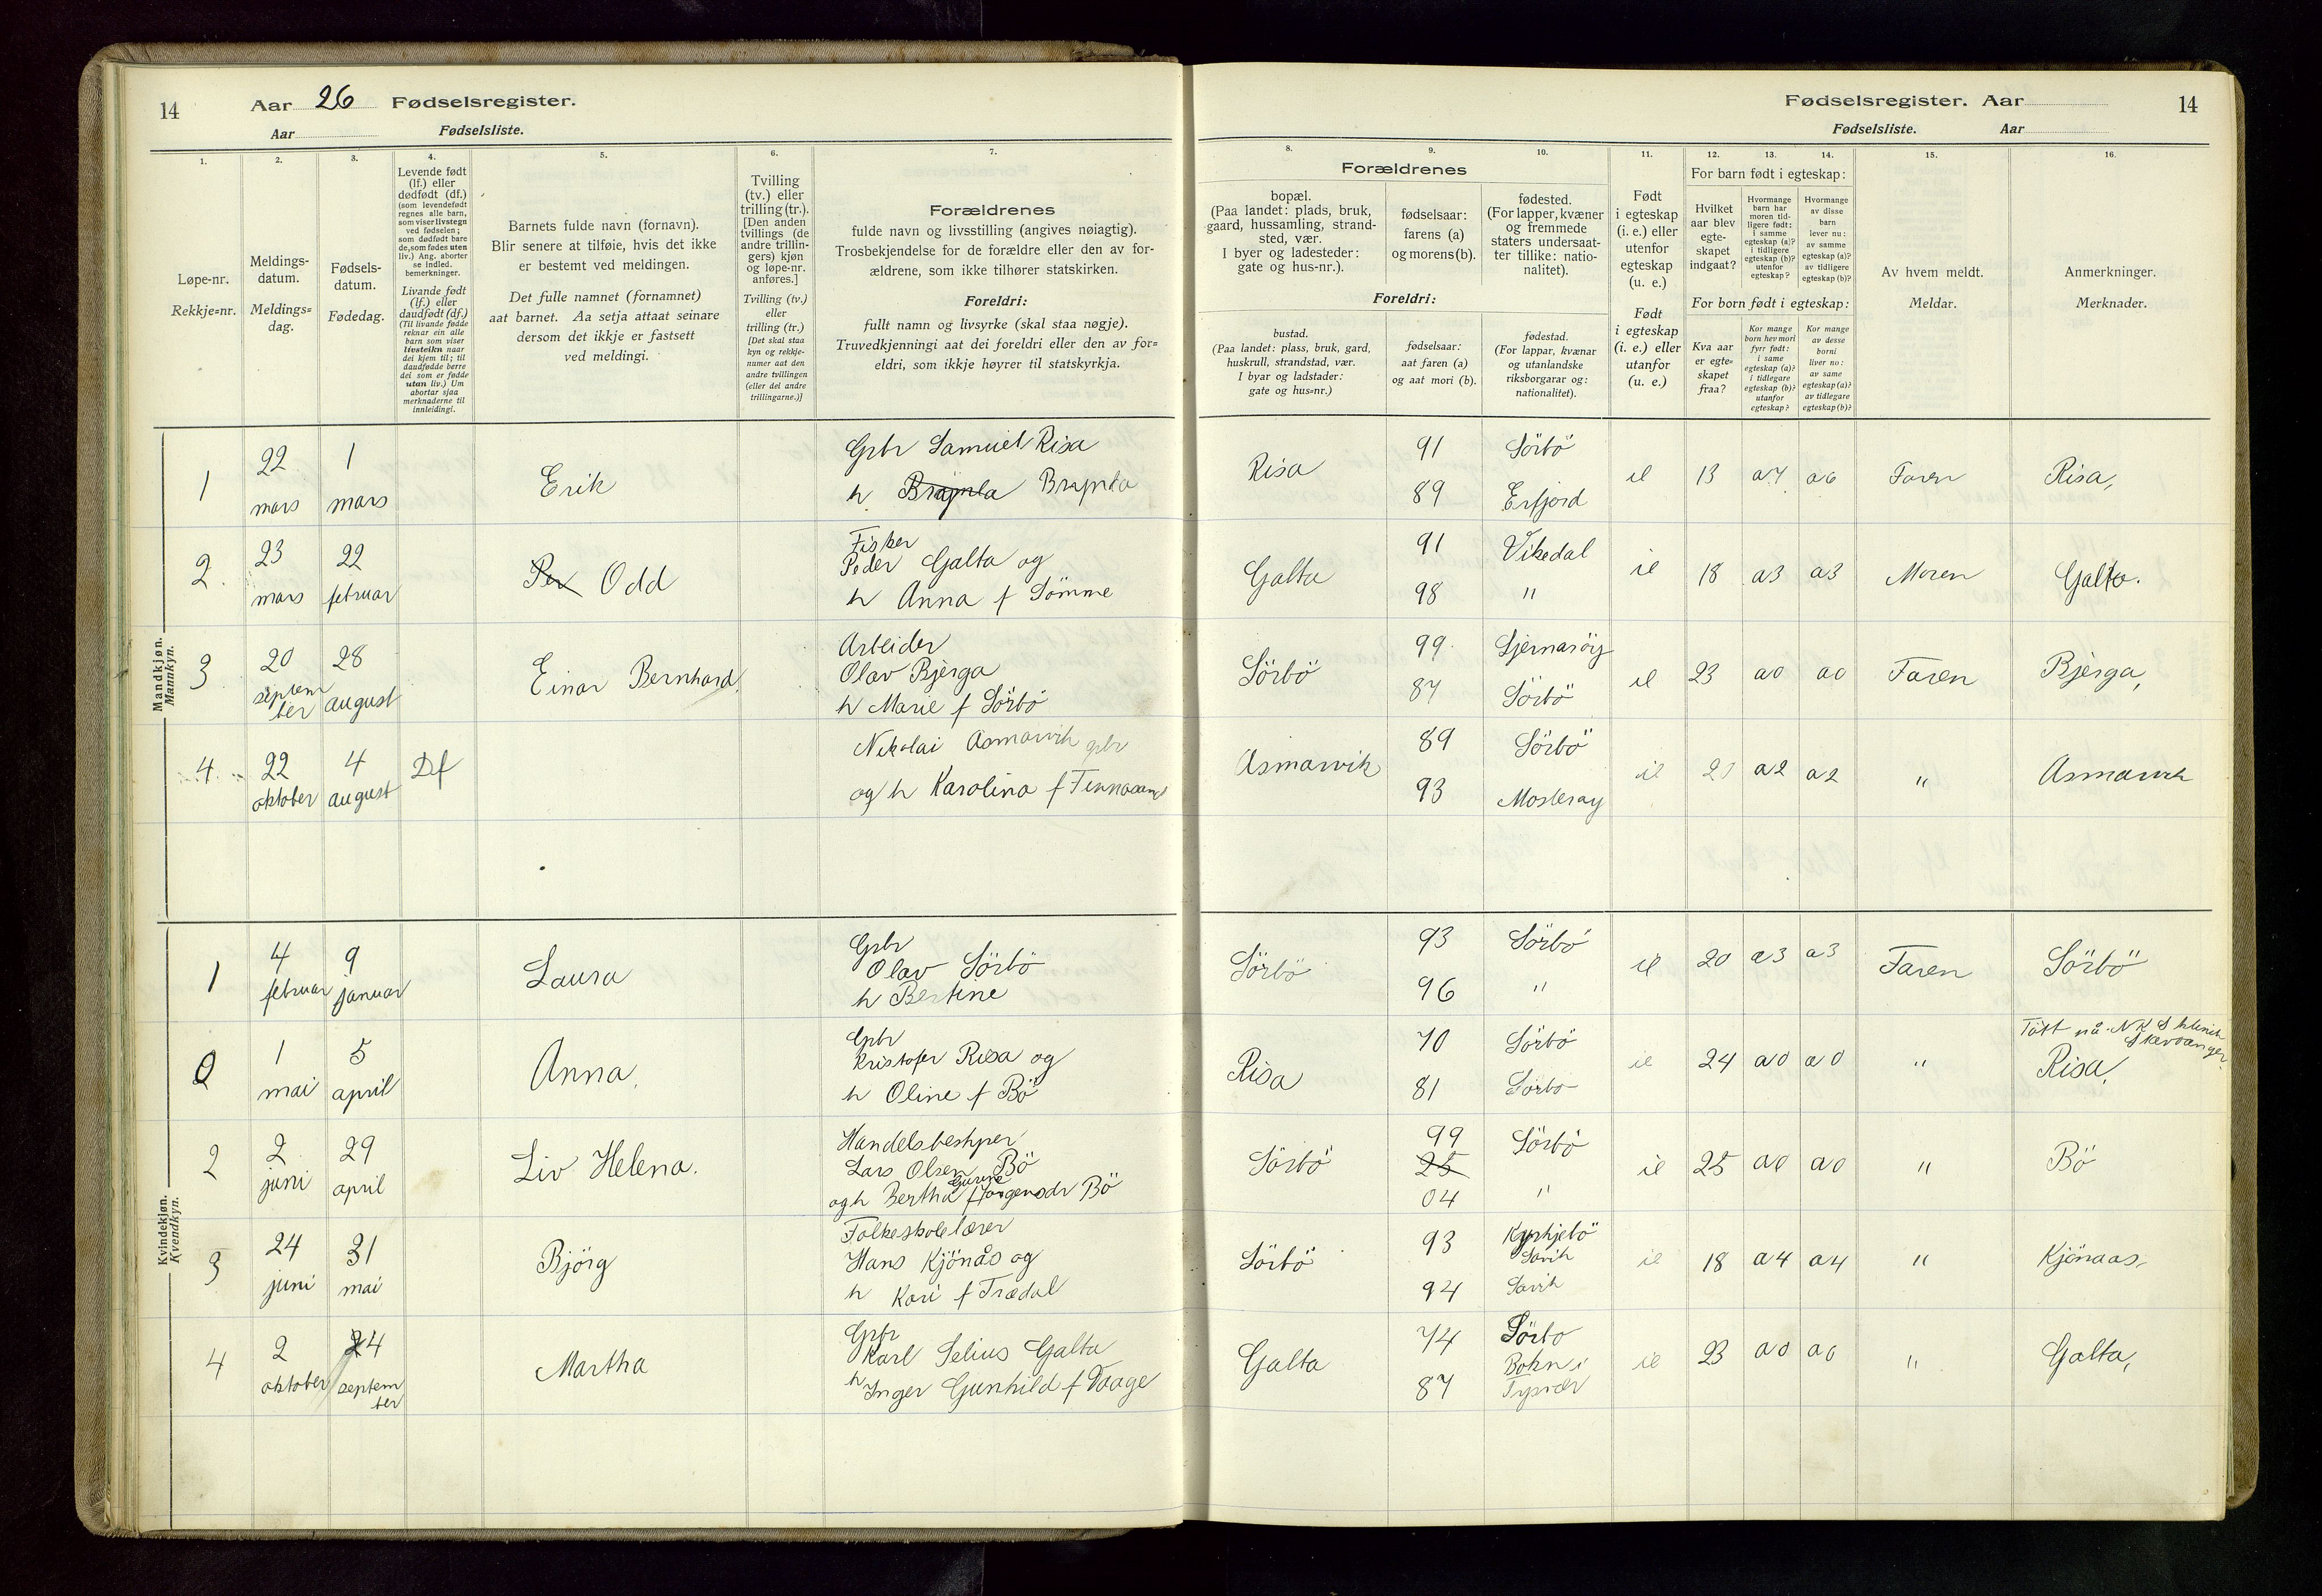 14 Aar 26 Fødselsregister.
Aar Fødselsliste.
1. 2. 3. 4. 5. 6. 7.
Løpe-nr.
Rekkje=nr.
Meldings-
datum.
Meldings=
dag.
Fødsels-
datum.
Fødedag.
Levende født
(lf.) eller
dødfødt (df.)
(som levendefødt
regnes alle barn,
som viser livstegn
ved fødselen;
som dødfødt bare
de, som fødes uten
liv.) Ang. aborter
se indled.
bemerkninger.
Livande født
(lf.) eller
daudfødt (df.)
(Til livande fødde
reknar ein alle
barn som viser
livsteikn naar
dei kjem til; til
daudfødde berre
dei som er fødde
utan liv.) Um
abortar sjaa
merknaderne til
innleidingi.
Barnets fulde navn (fornavn).
Blir senere at tilføie, hvis det ikke
er bestemt ved meldingen.
Det fulle namnet (fornamnet)
aat barnet. Aa setja attaat seinare
dersom det ikkje er fastsett
ved meldingi.
Tvilling
(tv.) eller
trilling (tr.).
[Den anden
tvillings (de
andre trillin-
gers) kjøn
og løpe-nr.
anføres.]
Tvilling (tv.)
eller
trilling (tr.)
[Det skal staa
kyn og rekkje-
numer aat den
andre tvillingen
(eller dei andre
trillingarne.)]
Forældrenes
fulde navn og livsstilling (angives nøiagtig).
Trosbekjendelse for de forældre eller den av for-
ældrene, som ikke tilhører statskirken.
Foreldri:
fullt namn og livsyrke (skal staa nøgje).
Truvedkjenningi aat dei foreldri eller den av for=
eldri, som ikkje høyrer til statskyrkja.
Mandkjøn.
Mannkyn.
1 22 mars 1 mars Erik
Gbr Samuel Risa
h Brynla
2. 23 mars 22 februar Per Odd
Fisker
Peder Galta og
h Anna f Sömme
3 20 september 28 august Einar Bernhard.
Arbeider
Olav Bjerga
h Marie f Sörbö
4 22 oktober 4 august Df
Nikolai Asmarvik gbr
og h Karolina f Finnasand
Kvindekjøn.
Kvendkyn.
1 4 februar 9 januar Laura
Gbr
Olav Sörbö
h Bertine
2 1 mai 5 april Anna.
Gbr
Kristofer Risa og
h Oline f Bö
2 2 juni 29 april Liv Helena.
Handelsbestyrer
Lars Olsen Bö
og h Bertha Gurine f Jörgensdr Bö
3 24 juni 31 mai Björg
Folkeskolelærer
Hans Kjönås og
h Kari f Trædal
4 2 oktober 24 september Martha
Gbr
Karl Selius Galta
h Inger Gunhild f Vaage
Fødselsregister. Aar 14
Fødselsliste. Aar
8. 9. 10. 11. 12. 13. 14. 15. 16.
Forældrenes
bopæl.
(Paa landet: plads, bruk,
gaard, hussamling, strand-
sted, vær.
I byer og ladesteder:
gate og hus-nr.).
fødselsaar:
farens (a)
og morens (b).
fødested.
(For lapper, kvæner
og fremmede
staters undersaat-
ter tillike: natio-
nalitet).
Foreldri:
bustad.
(Paa landet: plass, bruk, gard,
huskrull, strandstad, vær.
I byar og ladstader:
gate og hus=nr.)
fødselsaar:
aat faren (a)
og aat mori (b).
fødestad.
(For lappar, kvænar
og utanlandske
riksborgarar og:
nationalitet).
Født
i egteskap
(i. e.) eller
utenfor
egteskap
(u. e.)
Født
i egteskap
(i. e.) eller
utanfor
(u. e.)
For barn født i egteskap:
Hvilket
aar blev
egte-
skapet
indgaat?
Hvormange
barn har
moren tid-
ligere født:
i samme
egteskap (a)?
i tidligere
egteskap (b)?
utenfor
egteskap?
Hvormange
av disse
barn
lever nu:
av samme
egteskap (a)?
av tidligere
egteskap (b)?
For born født i egteskap:
Kva aar
er egte=
skapet
fraa?
Kor mange
born hev mori
fyrr født:
i same
egteskap (a)?
i tidlegare
egteskap (b)?
utanfor
egteskap?
Kor mange
av desse
borni
liver no:
av same
egteskap (a)?
av tidlegare
egteskap (b)?
Av hvem meldt.
Meldar.
Anmerkninger.
Merknader.
Risa 91 Sörbö ie 13 a7 a6 Faren Risa,
89 Erfjord
Galta 91 Vikedal ie 18 a3 a3 Moren Galta.
98 "
Sörbö 99 Sjernaröy ie 23 a0 a0 Faren Bjerga,
87 Sörbö
Asmarvik 89 Sörbö ie 21 a2 a2 " Asmarvik
93 Mosteröy
Sörbö 93 Sörbö ie 20 a3 a3 Faren Sörbö
96 "
Risa 70 Sörbö ie 24 a0 a0 " Födt på N K S klinik Stavanger.
81 Sörbö Risa,
Sörbö 99 Sörbö ie 25 a0 a0 " Bö
25
04 "
Sörbö 93 Kyrkjebö ie 18 a4 a4 " Kjönaas,
Lavik
94 Lavik
Galta 74 Sörbö ie 23 a0 a0 " Galta,
87 Bokn i
Tysvær